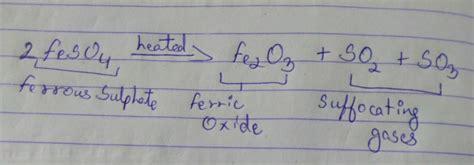 2 FeSO4 heated → Fe2O3 + SO2 + SO3
ferrous Sulphate ferric Suffocating
Oxide gases